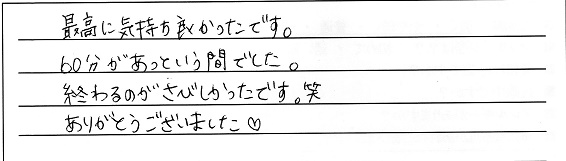 最高に気持ち良かったです。
60分があっという間でした。
終わるのがさびしかったです。笑
ありがとうございました♡